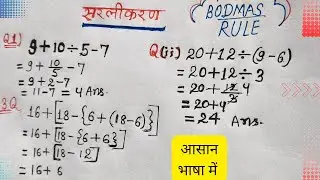 सरलीकरण
BODMAS
RULE
Q1) 9+10÷5-7
= 9+10/5-7
= 9+2-7
= 11-7 = 4 Ans.
Q(ii) 20+12÷(9-6)
= 20+12÷3
= 20+12/3 4
= 20+4
= 24 Ans.
3Q 16+[18-{6+(18-6)}
= 16+[18-{6+6}]
= 16+[18-12]
= 16+6
आसान
भाषा में